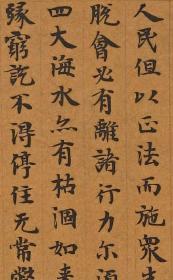 人民但以正法而施衆
脫會必有離諸行力尔
四大海水亦有枯涸如
緣窮訖不得停住无常